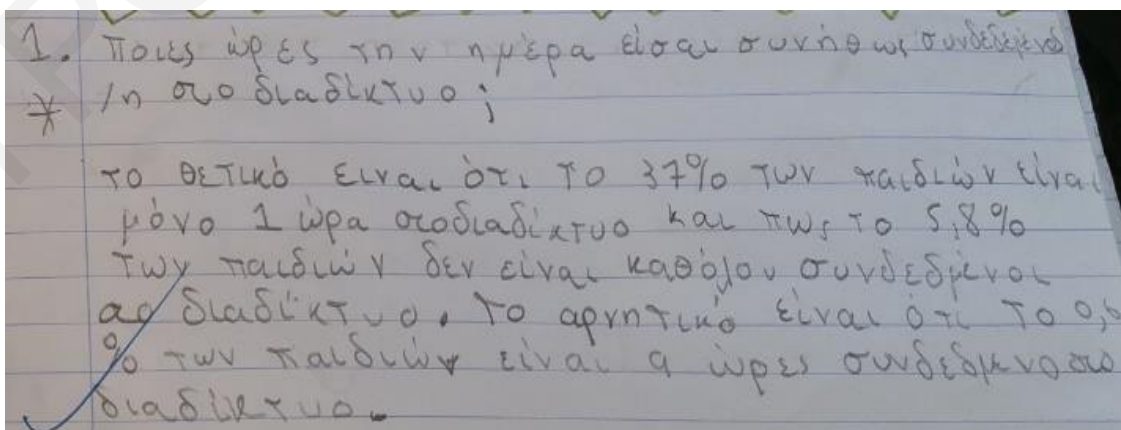 1. Ποιες ώρες την ημέρα είσαι συνήθως συνδεδεμένος
* /η στο διαδίκτυο;
το θετικό ειναι ότι το 37% των παιδιών είναι
μόνο 1 ώρα στοδιαδίκτυο και πως το 5,8%
των παιδιών δεν είναι καθόλου συνδεδμένοι
στο διαδίκτυο. Το αρνητικό είναι ότι το 0,6
% των παιδιών είναι 9 ώρες συνδεδμενο στο
διαδίκτυο.